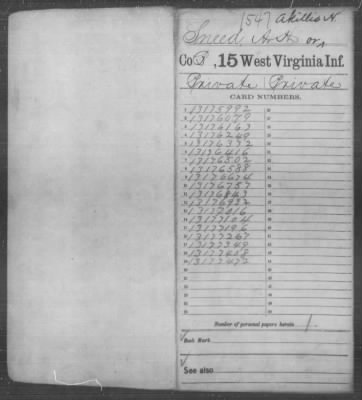 1547 Akillis H.
Sneed, A. H. or,
Co B, 15 West Virginia Inf.
Private Private
CARD NUMBERS.
1 13175992
2 13176079
3 13176163
4 13176249
5 13176332
6 13176416
7 13176502
8 13176588
9 13176674
10 13176757
11 13176843
12 13176932
13 13177016
14 13177104
15 13177196
16 13177267
17 13177349
18 13177418
19 13177472
Number of personal papers herein 1.
Book Mark:
See also